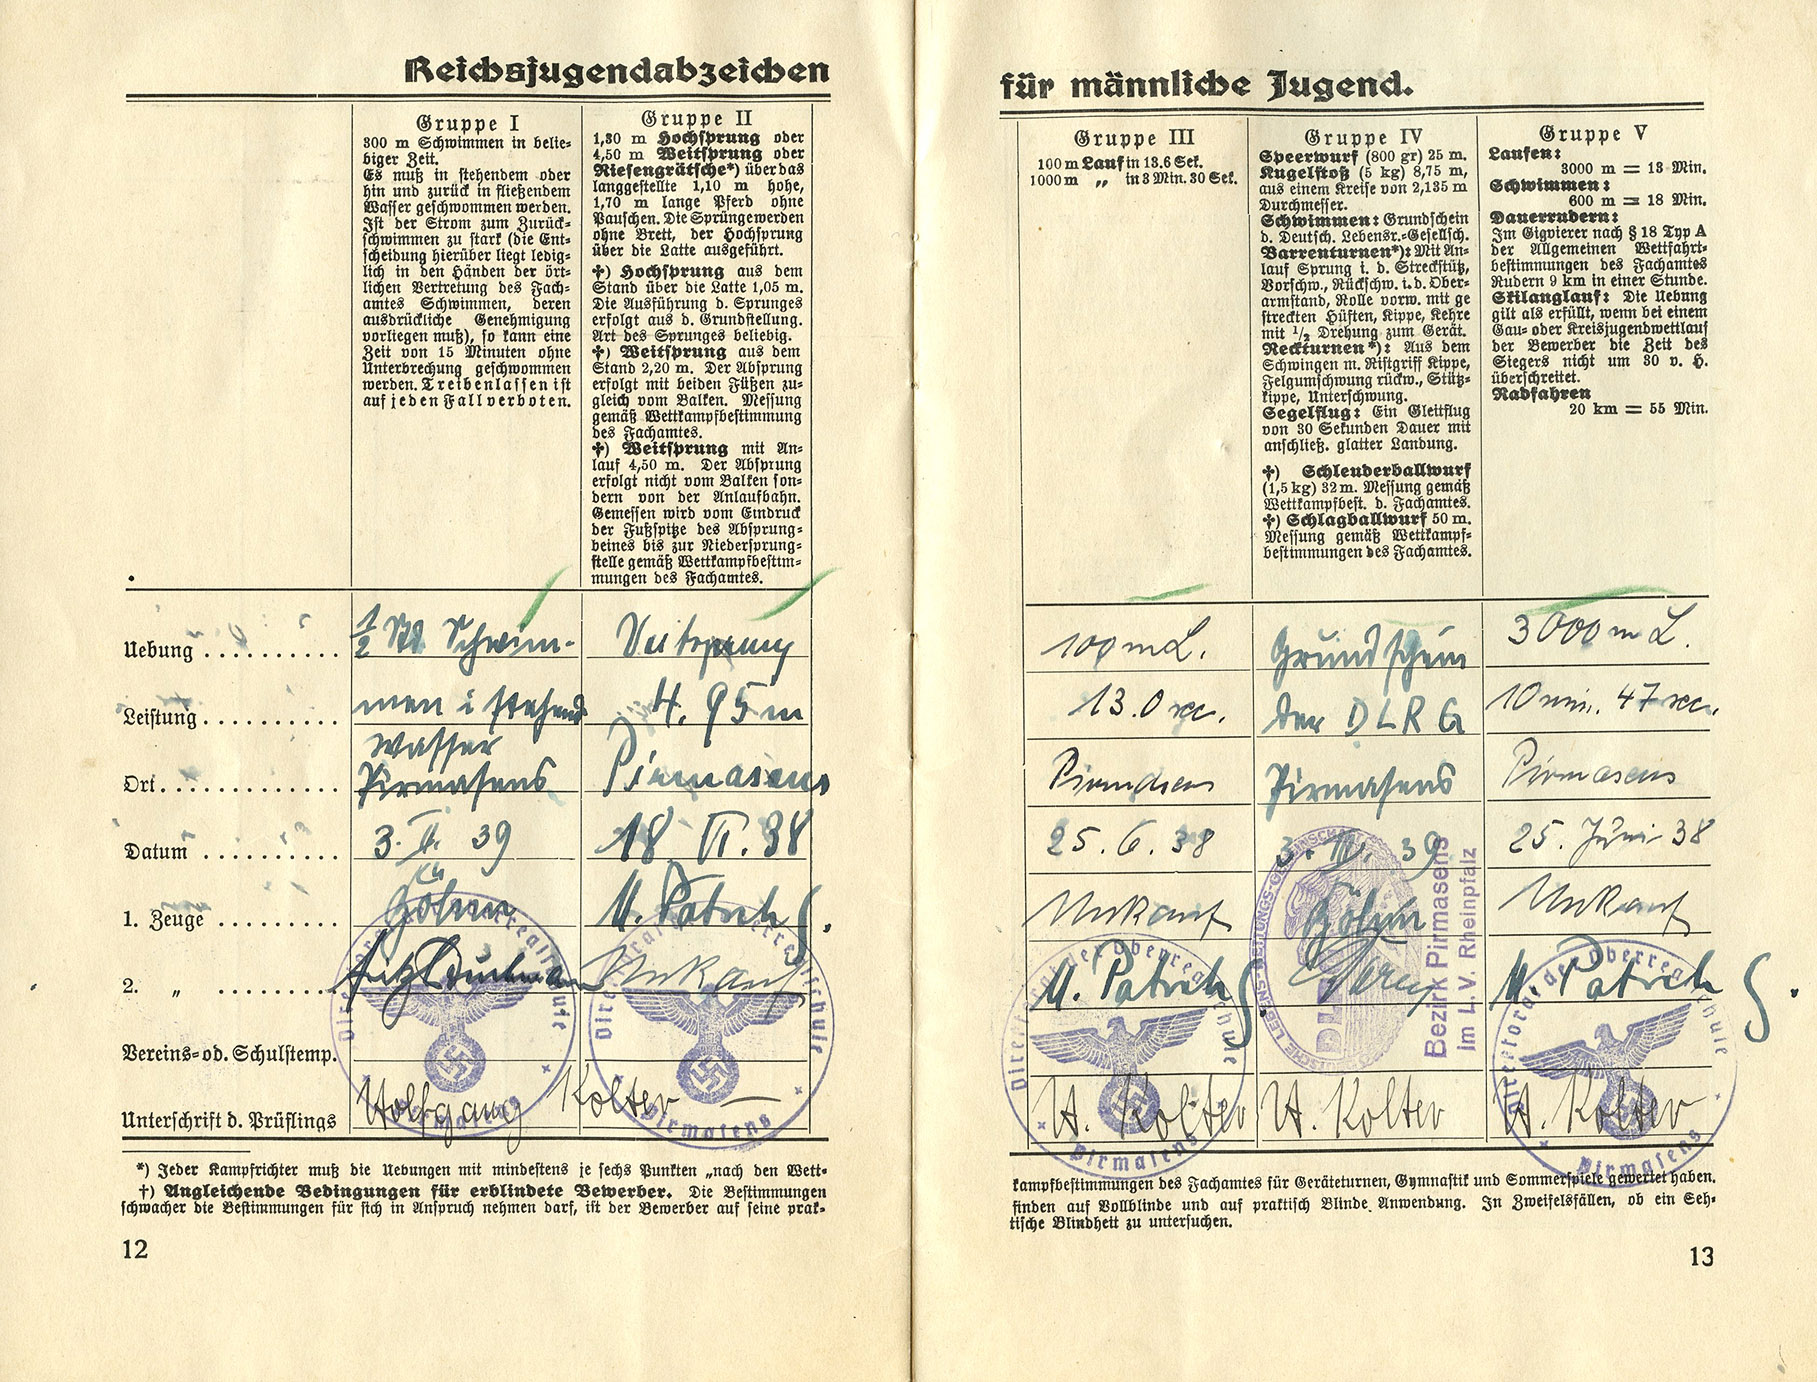 Reichsjugendabzeichen
Gruppe I
300 m Schwimmen in belie-
biger Zeit.
Es muß in stehendem oder
hin und zurück in fließendem
Wasser geschwommen werden.
Ist der Strom zum Zurück-
schwimmen zu stark (die Ent-
scheidung hierüber liegt ledig-
lich in den Händen der ört-
lichen Vertretung des Fach-
amtes Schwimmen, deren
ausdrückliche Genehmigung
vorliegen muß), so kann eine
Zeit von 15 Minuten ohne
Unterbrechung geschwommen
werden. Treibenlassen ist
auf jeden Fall verboten.
Gruppe II
1,30 m Hochsprung oder
4,50 m Weitsprung oder
Riesengrätsche*) über das
langgestellte 1,10 m hohe,
1,70 m lange Pferd ohne
Pauschen. Die Sprünge werden
ohne Brett, der Hochsprung
über die Latte ausgeführt.
†) Hochsprung aus dem
Stand über die Latte 1,05 m.
Die Ausführung d. Sprunges
erfolgt aus d. Grundstellung.
Art des Sprunges beliebig.
†) Weitsprung aus dem
Stand 2,20 m. Der Absprung
erfolgt mit beiden Füßen zu-
gleich vom Balken. Messung
gemäß Wettkampfbestimmung
des Fachamtes.
†) Weitsprung mit An-
lauf 4,50 m. Der Absprung
erfolgt nicht vom Balken son-
dern von der Anlaufbahn.
Gemessen wird vom Eindruck
der Fußspitze des Absprung-
beines bis zur Niedersprung-
stelle gemäß Wettkampfbestim-
mungen des Fachamtes.
Uebung . . . . . . . . . . ½ Std. Schwim- Weitsprung
Leistung . . . . . . . . . . men i stehend 4.95 m
Wasser
Ort . . . . . . . . . . . . . Pirmasens Pirmasens
Datum . . . . . . . . . . 3. II. 39 18 VI. 38
1. Zeuge . . . . . . . . . Göhm M. Patrick
2. „ . . . . . . . . . Unkauf
Vereins- od. Schulstemp.
Direktorat der Oberrealschule Pirmasens
Direktorat der Oberrealschule Pirmasens
Unterschrift d. Prüflings Wolfgang Kolter —
*) Jeder Kampfrichter muß die Uebungen mit mindestens je sechs Punkten „nach den Wett-
†) Angleichende Bedingungen für erblindete Bewerber. Die Bestimmungen
schwacher die Bestimmungen für sich in Anspruch nehmen darf, ist der Bewerber auf seine prak-
12
für männliche Jugend.
Gruppe III
100 m Lauf in 13.6 Sek.
1000 m „ in 3 Min. 30 Sek.
Gruppe IV
Speerwurf (800 gr) 25 m.
Kugelstoß (5 kg) 8,75 m,
aus einem Kreise von 2,135 m
Durchmesser.
Schwimmen: Grundschein
d. Deutsch. Lebensr.-Gesellsch.
Barrenturnen*): Mit An-
lauf Sprung i. d. Streckstütz,
Vorschw., Rückschw. i. d. Ober-
armstand, Rolle vorw. mit ge
streckten Hüften, Kippe, Kehre
mit ½ Drehung zum Gerät.
Reckturnen*): Aus dem
Schwingen m. Ristgriff Kippe,
Felgumschwung rückw., Stütz-
kippe, Unterschwung.
Segelflug: Ein Gleitflug
von 30 Sekunden Dauer mit
anschließ. glatter Landung.
†) Schleuderballwurf
(1,5 kg) 32 m. Messung gemäß
Wettkampfbest. d. Fachamtes.
†) Schlagballwurf 50 m.
Messung gemäß Wettkampf-
bestimmungen des Fachamtes.
Gruppe V
Laufen:
3000 m = 13 Min.
Schwimmen:
600 m = 18 Min.
Dauerrudern:
Im Gigvierer nach § 18 Typ A
der Allgemeinen Wettfahrt-
bestimmungen des Fachamtes
Rudern 9 km in einer Stunde.
Skilanglauf: Die Uebung
gilt als erfüllt, wenn bei einem
Gau- oder Kreisjugendwettlauf
der Bewerber die Zeit des
Siegers nicht um 30 v. H.
überschreitet.
Radfahren
20 km = 55 Min.
100 m L. Grundschein 3000 m L.
13.0 sec. der DLRG 10 min. 47 sec.
Pirmasens Pirmasens Pirmasens
25. 6. 38 3. 39 25. Juni 38
Unkauf Göhm Unkauf
M. Patrick M. Patrick
Bezirk Pirmasens
im L. V. Rheinpfalz
Direktorat der Oberrealschule Pirmasens
Direktorat der Oberrealschule Pirmasens
W. Kolter W. Kolter W. Kolter
kampfbestimmungen des Fachamtes für Geräteturnen, Gymnastik und Sommerspiele gewertet haben.
finden auf Vollblinde und auf praktisch Blinde Anwendung. In Zweifelsfällen, ob ein Seh-
tische Blindheit zu untersuchen.
13